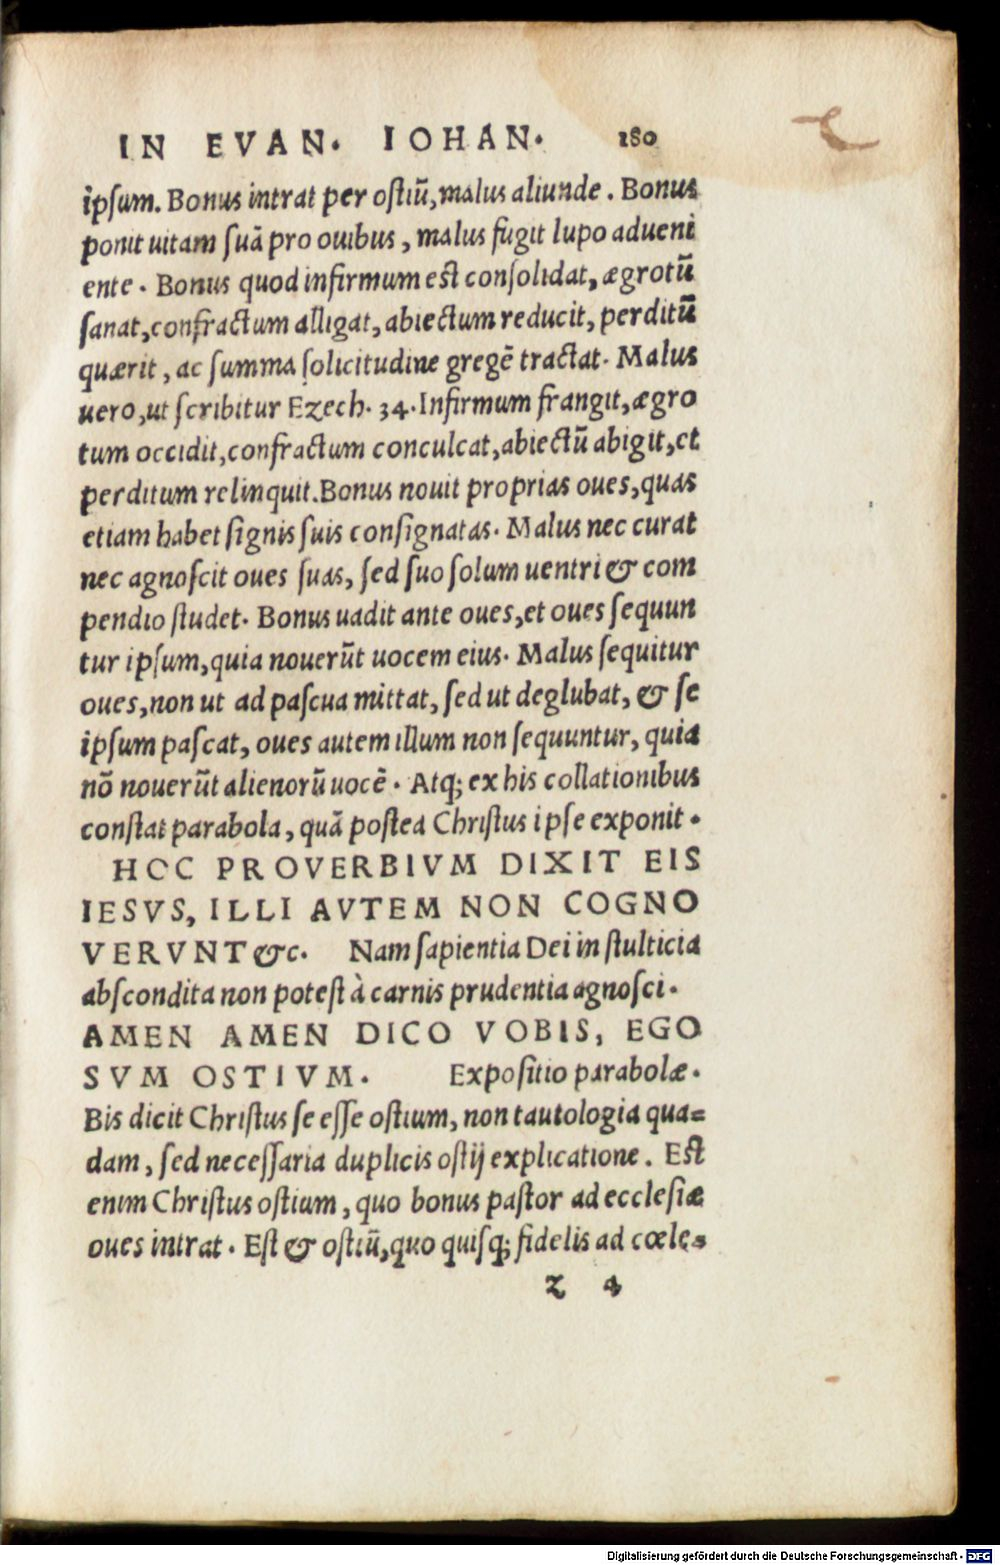 IN EVAN. IOHAN. 180
ipsum. Bonus intrat per ostiū, malus aliunde. Bonus
ponit uitam suā pro ouibus, malus fugit lupo adueni
ente. Bonus quod infirmum est consolidat, ægrotū
sanat, confractum alligat, abiectum reducit, perditū
quærit, ac summa solicitudine gregē tractat. Malus
uero, ut scribitur Ezech. 34. Infirmum frangit, ægro
tum occidit, confractum conculcat, abiectū abigit, et
perditum relinquit. Bonus nouit proprias oues, quas
etiam habet signis suis consignatas. Malus nec curat
nec agnoscit oues suas, sed suo solum uentri & com
pendio studet. Bonus uadit ante oues, et oues sequun
tur ipsum, quia nouerūt uocem eius. Malus sequitur
oues, non ut ad pascua mittat, sed ut deglubat, & se
ipsum pascat, oues autem illum non sequuntur, quia
nō nouerūt alienorū uocē. Atq; ex his collationibus
constat parabola, quā postea Christus ipse exponit.
HOC PROVERBIVM DIXIT EIS
IESVS, ILLI AVTEM NON COGNO
VERVNT &c. Nam sapientia Dei in stulticia
abscondita non potest à carnis prudentia agnosci.
AMEN AMEN DICO VOBIS, EGO
SVM OSTIVM. Expositio parabolæ.
Bis dicit Christus se esse ostium, non tautologia qua=
dam, sed necessaria duplicis ostij explicatione. Est
enim Christus ostium, quo bonus pastor ad ecclesiæ
oues intrat. Est & ostiū, quo quisq; fidelis ad cœle=
z 4
Digitalisierung gefördert durch die Deutsche Forschungsgemeinschaft - DFG